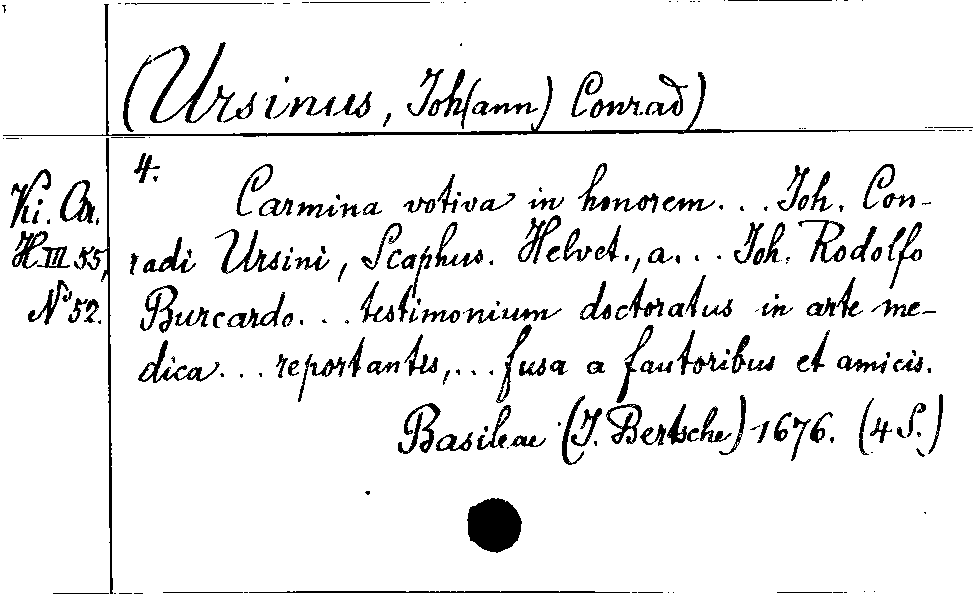 (Ursinus, Joh(ann) Conrad)
Ki. Ar.
H. III 55,
No 52.
4.
Carmina votiva in honorem... Joh. Con-
radi Ursini, Scaphus. Helvet., a... Joh. Rodolfo
Burcardo... testimonium doctoratus in arte me-
dica... reportantis,... fusa a fautoribus et amicis.
Basileae (J. Bertsche) 1676. (4 S.)